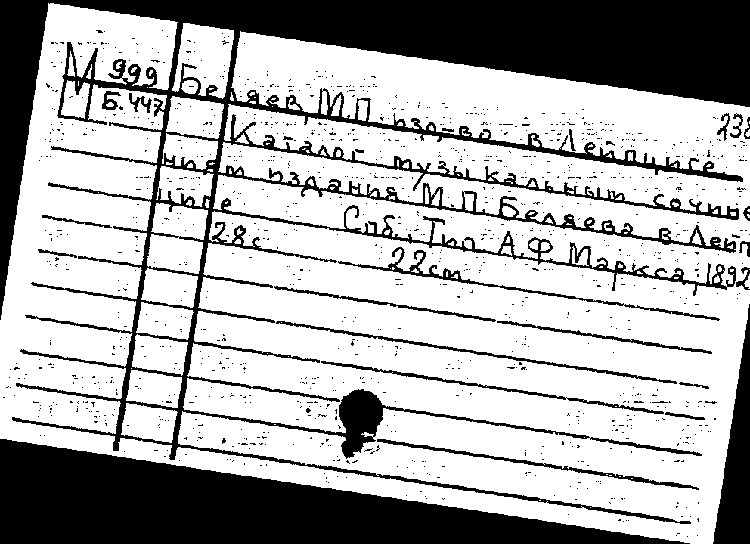 М 999
Б.447
238
Беляев, М.П. изд-во в Лейпциге.
Каталог музыкальным сочине
ниям издания М.П. Беляева в Лейп
циге
Спб., Тип. А.Ф Маркса, 1892
28с 22cm